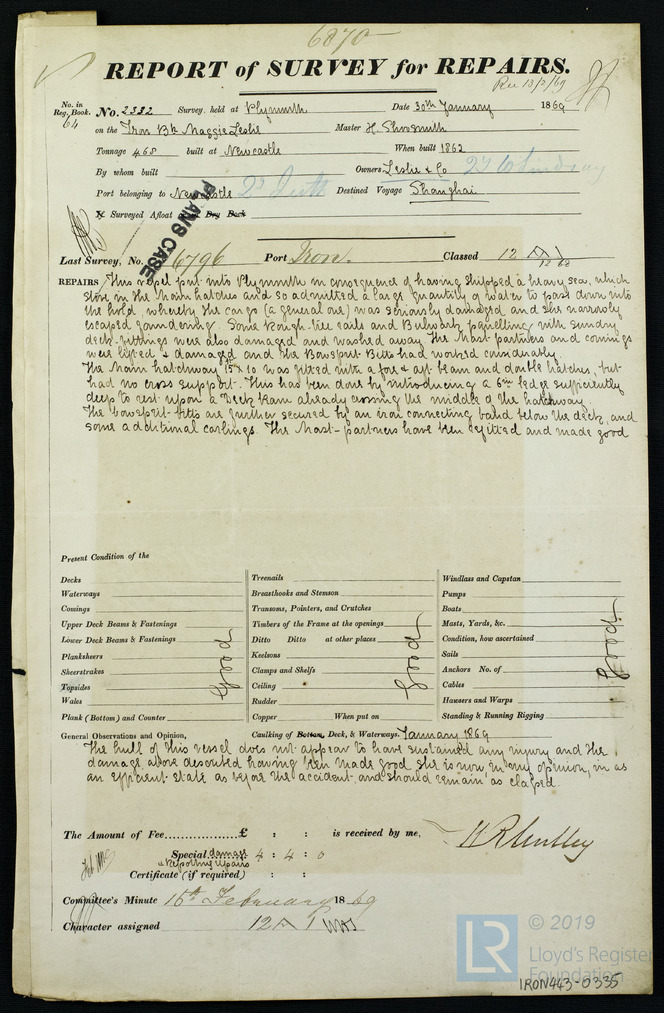 6870
REPORT of SURVEY for REPAIRS.
Rec 13/2/69
No. in Reg. Book. 64 No. 2332 Survey held at Plymouth Date 30th January 1869
on the Iron Bk Maggie Leslie Master H. Shrosmith
Tonnage 468 built at Newcastle When built 1862
By whom built Owners Leslie & Co
Port belonging to Newcastle Destined Voyage Shanghai
Surveyed Afloat Dry Dock
PLANS CASE
Last Survey, No. 6796 Port Iron. Classed 12 A 1
12 62
REPAIRS This vessel put into Plymouth in consequence of having shipped a heavy sea, which
stove in the Main hatches and so admitted a large quantity of water to pass down into
the hold, whereby the cargo (a general one) was seriously damaged and she narrowly
escaped foundering. Some Rough-tree rails and Bulwark panelling with sundry
deck-fittings were also damaged and washed away. The Mast partners and comings
were lifted & damaged and the Bowsprit Bitts had worked considerably.
The Main hatchway 15 x 10 was fitted with a fore & aft beam and double hatches, but
had no cross support. This has been done by introducing a 6in ledge sufficiently
deep to rest upon a Deck beam already crossing the middle of the hatchway.
The bowsprit-bitts are further secured by an iron connecting band below the deck, and
some additional carlings. The Mast-partners have been refitted and made good
Present Condition of the
Decks
Waterways
Comings
Upper Deck Beams & Fastenings
Lower Deck Beams & Fastenings
Planksheers
Sheerstrakes
Topsides
Wales
Plank (Bottom) and Counter
Good
Treenails
Breasthooks and Stemson
Transoms, Pointers, and Crutches
Timbers of the Frame at the openings
Ditto Ditto at other places
Keelsons
Clamps and Shelfs
Ceiling
Rudder
Copper When put on
Good
Caulking of Bottom, Deck, & Waterways. January 1869
Windlass and Capstan
Pumps
Boats
Masts, Yards, &c.
Condition, how ascertained
Sails
Anchors No. of
Cables
Hawsers and Warps
Standing & Running Rigging
Good
General Observations and Opinion,
The hull of this vessel does not appear to have sustained any injury and the
damage above described having been made good she is now in my opinion, in as
an efficient state as before the accident and should remain as classed.
The Amount of Fee £ : : is received by me,
Special damage 4 : 4 : 0
& Reporting Repairs
Certificate (if required) : :
Committee's Minute 16th February 1869
Character assigned 12 A 1
LR © 2019
Lloyd's Register
Foundation
IRON443-0335